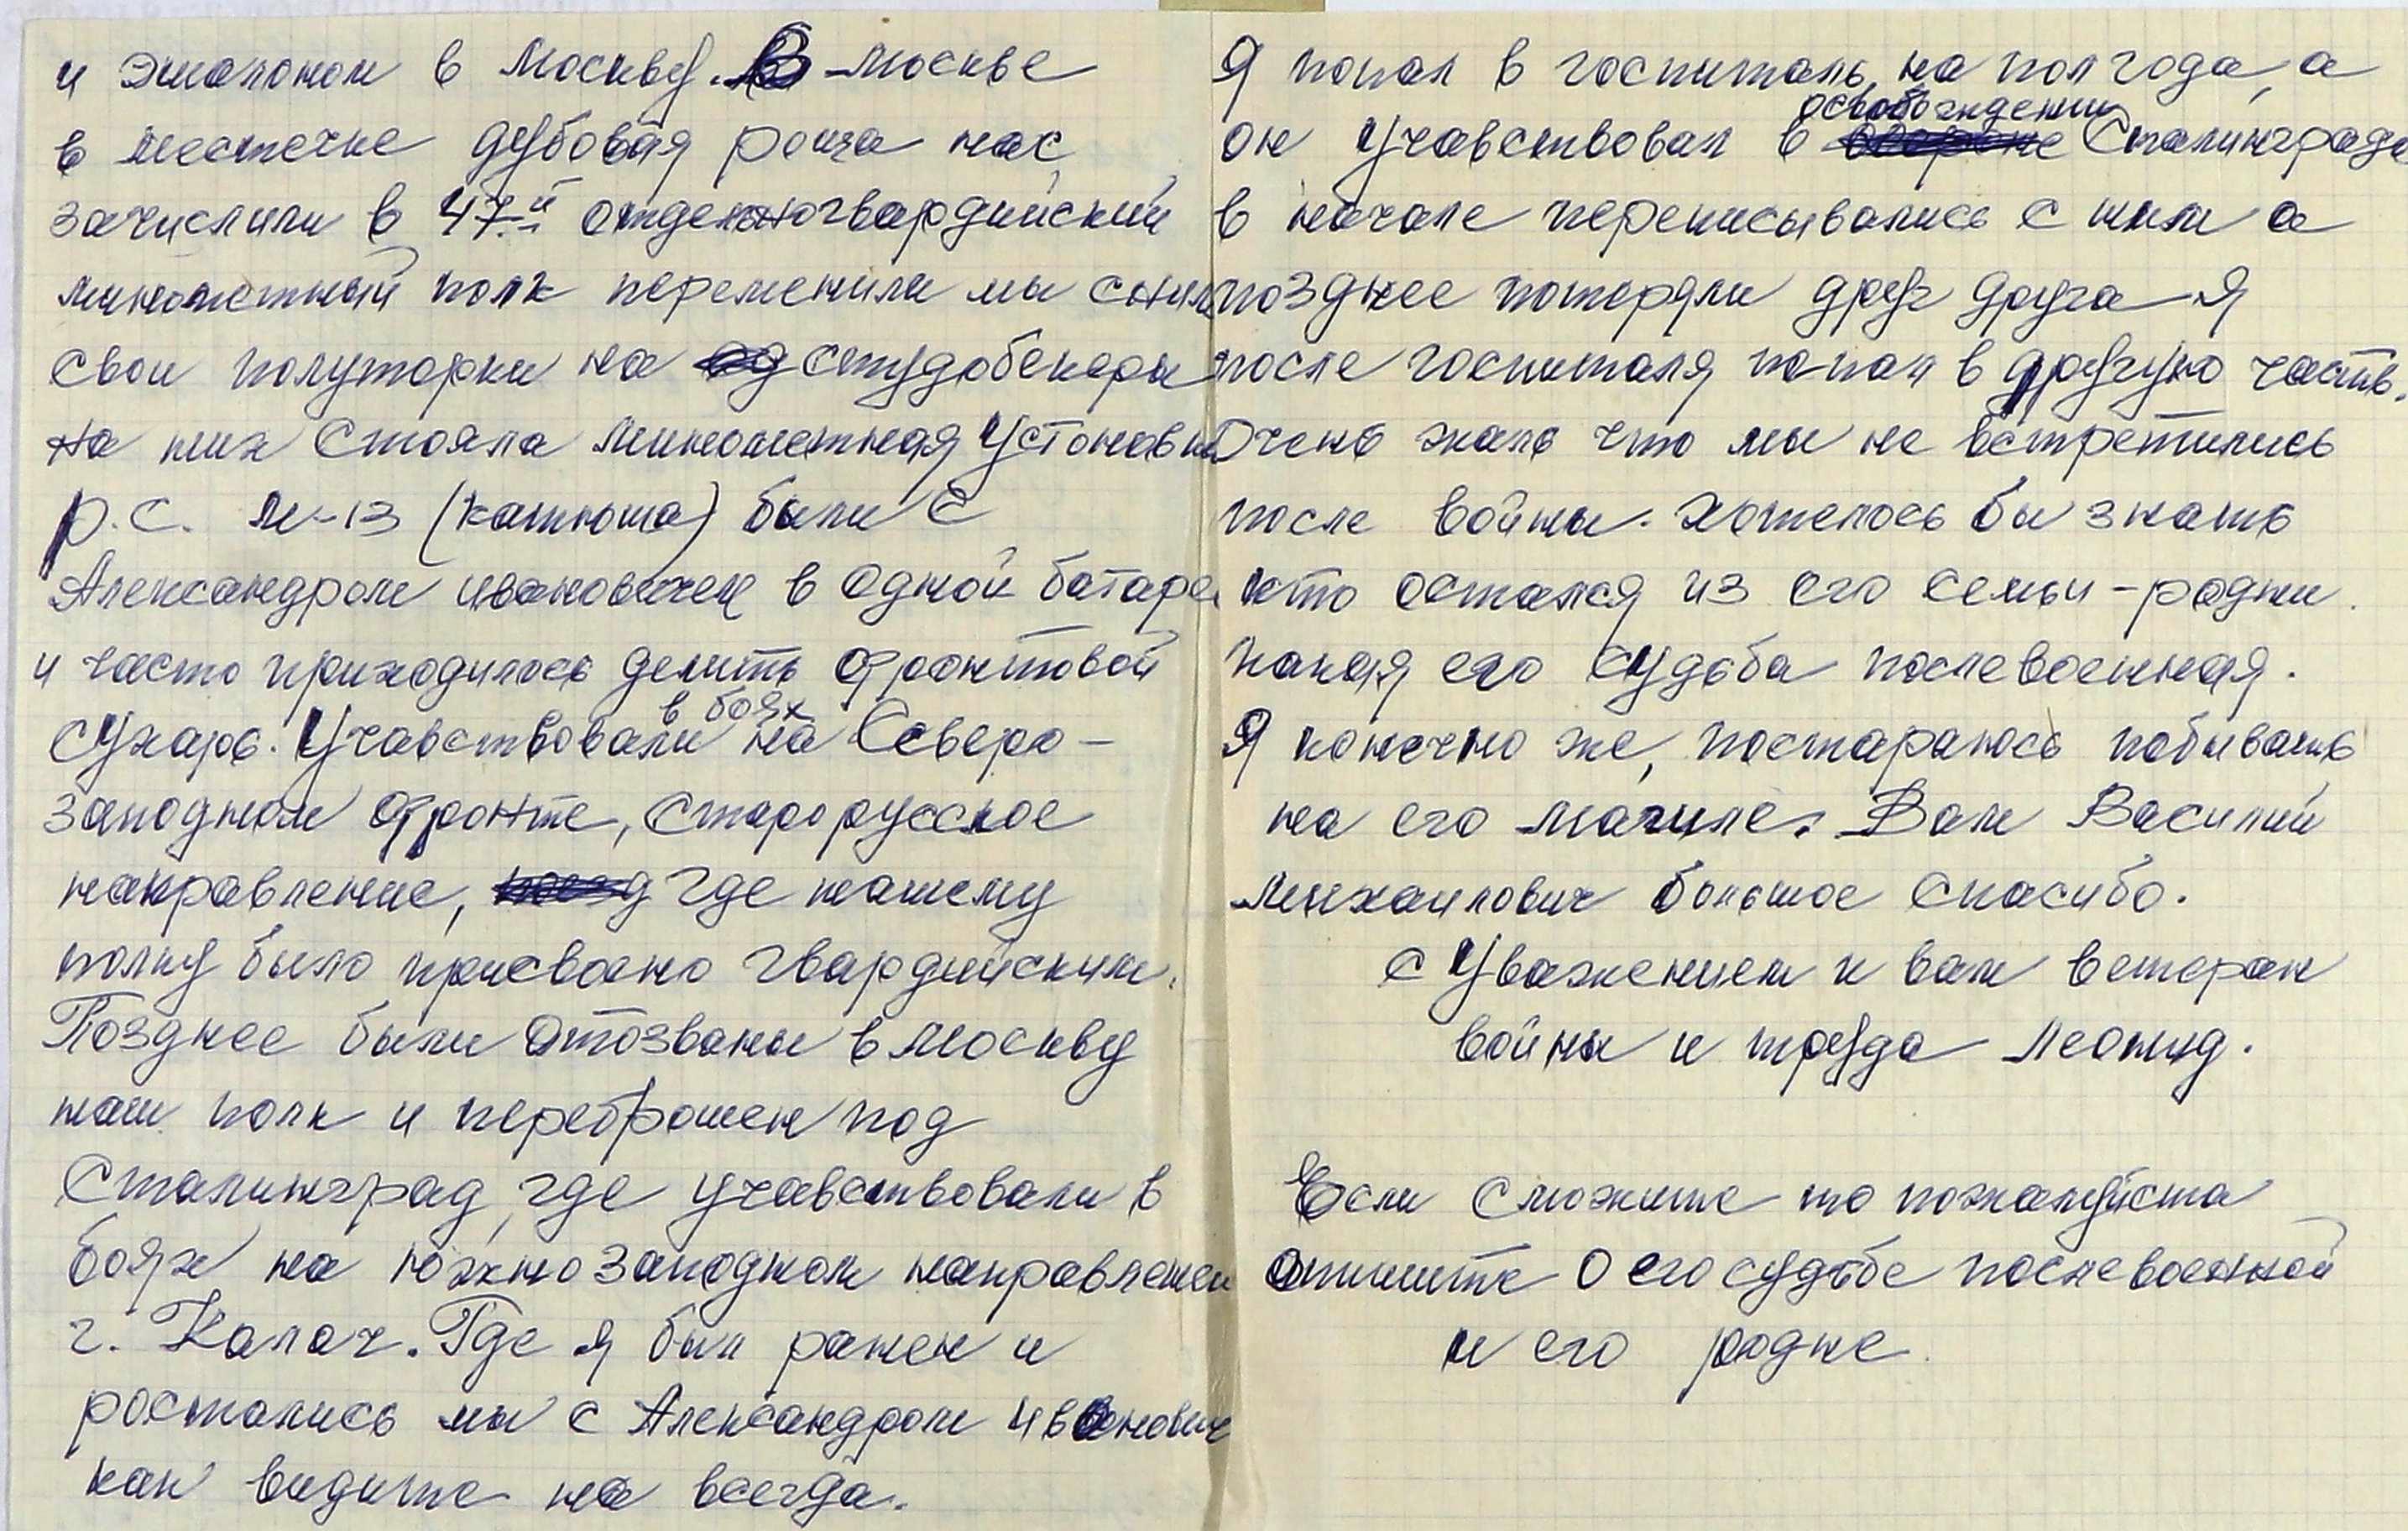 и эшалоном в Москву. В Москве
в местечке дубовая роща нас
зачислили в 47й отдельногвардийский
миномётный полк переменили мы сними
свои полуторки на студобекеры
на них стояла миномётная устоновк
Р.С. М-13 (катюша) были с
Александром ивановичем в одной батаре
и часто приходилось делить фронтовой
сухарь. Учавствовали в боях на Северо-
заподном фронте, старорусское
направление, где нашему
полку было присвоено гвардийским.
Позднее были отозваны в Москву
наш полк и переброшен под
Сталинград, где учавствовали в
боях на южнозаподном направлении
г. Калач. Где я был ранен и
ростались мы с Александром Иванович
как видите на всегда.
Я попал в госпиталь на пол года, а
он учавствовал в освобождении Сталинграда
в начале переписывались с ним а
позднее потеряли друг друга я
после госпиталя попал в другую часть.
Очень жаль что мы не встретились
после войны. Хотелось бы знать
кто остался из его семьи - родни.
какая его судьба послевоенная.
Я конечно же, постараюсь побывать
на его могиле. Вам Василий
Михаилович большое спасибо.
с Уважением к вам ветеран
войны и труда Леонид.
Если сможите то пожалуйста
опишите о его судьбе послевоенной
и его родне.